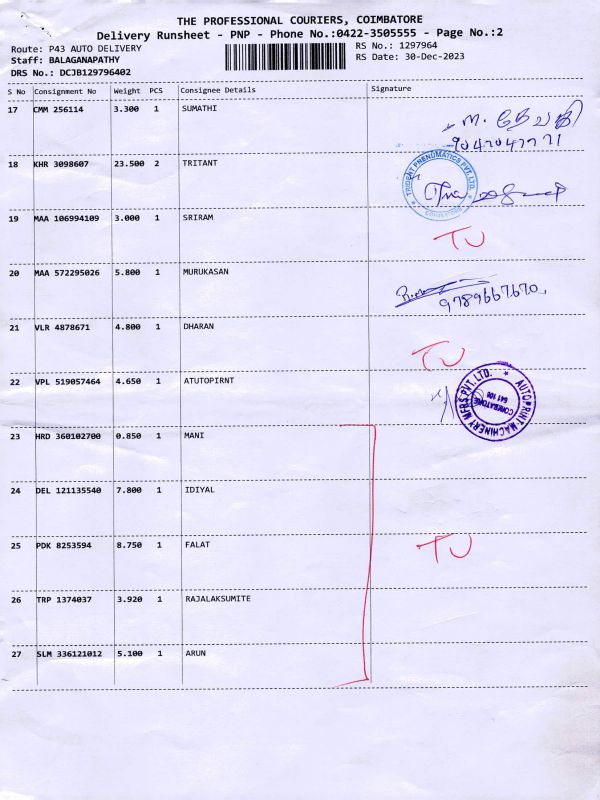 THE PROFESSIONAL COURIERS, COIMBATORE
Delivery Runsheet - PNP - Phone No.:0422-3505555 - Page No.:2
Route: P43 AUTO DELIVERY RS No.: 1297964
Staff: BALAGANAPATHY RS Date: 30-Dec-2023
DRS No.: DCJB129796402
S No Consignment No Weight PCS Consignee Details Signature
17 CMM 256114 3.300 1 SUMATHI
18 KHR 3098607 23.500 2 TRITANT
TRIDENT PHENUMATICS PVT. LTD. COIMBATORE
19 MAA 106994109 3.000 1 SRIRAM TU
20 MAA 572295026 5.800 1 MURUKASAN
9789667670
21 VLR 4878671 4.800 1 DHARAN TU
22 VPL 519057464 4.650 1 ATUTOPIRNT
AUTOPRINT MACHINERY MFRS PVT. LTD. COIMBATORE 641 108
23 HRD 360102700 0.850 1 MANI
24 DEL 121135540 7.800 1 IDIYAL
25 PDK 8253594 8.750 1 FALAT TU
26 TRP 1374037 3.920 1 RAJALAKSUMITE
27 SLM 336121012 5.100 1 ARUN